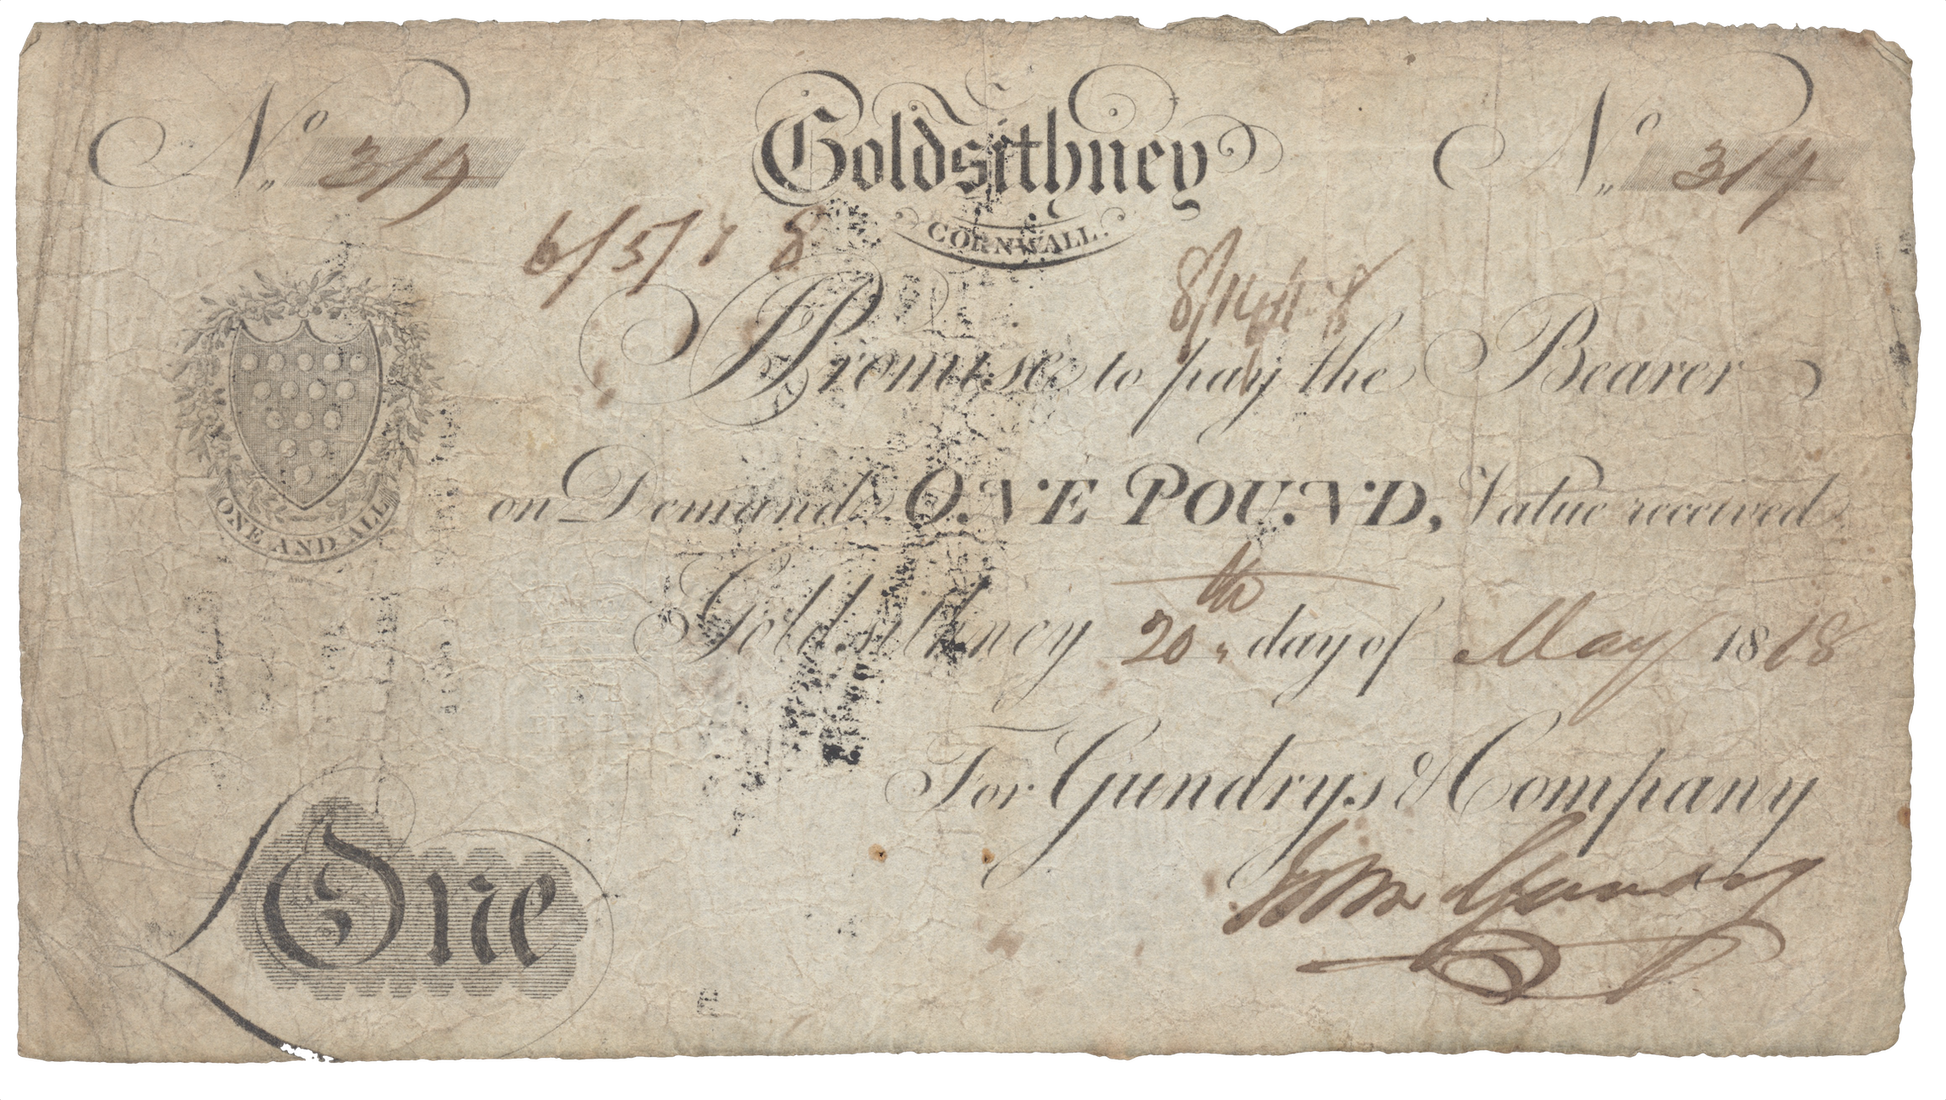 No 314
Goldsithney
No 314
CORNWALL.
6/5/18
I Promise to pay the Bearer
on Demand ONE POUND, Value received
ONE AND ALL
Goldsithney 20th day of May 1818
For Gundrys & Company
John Gundry
£One